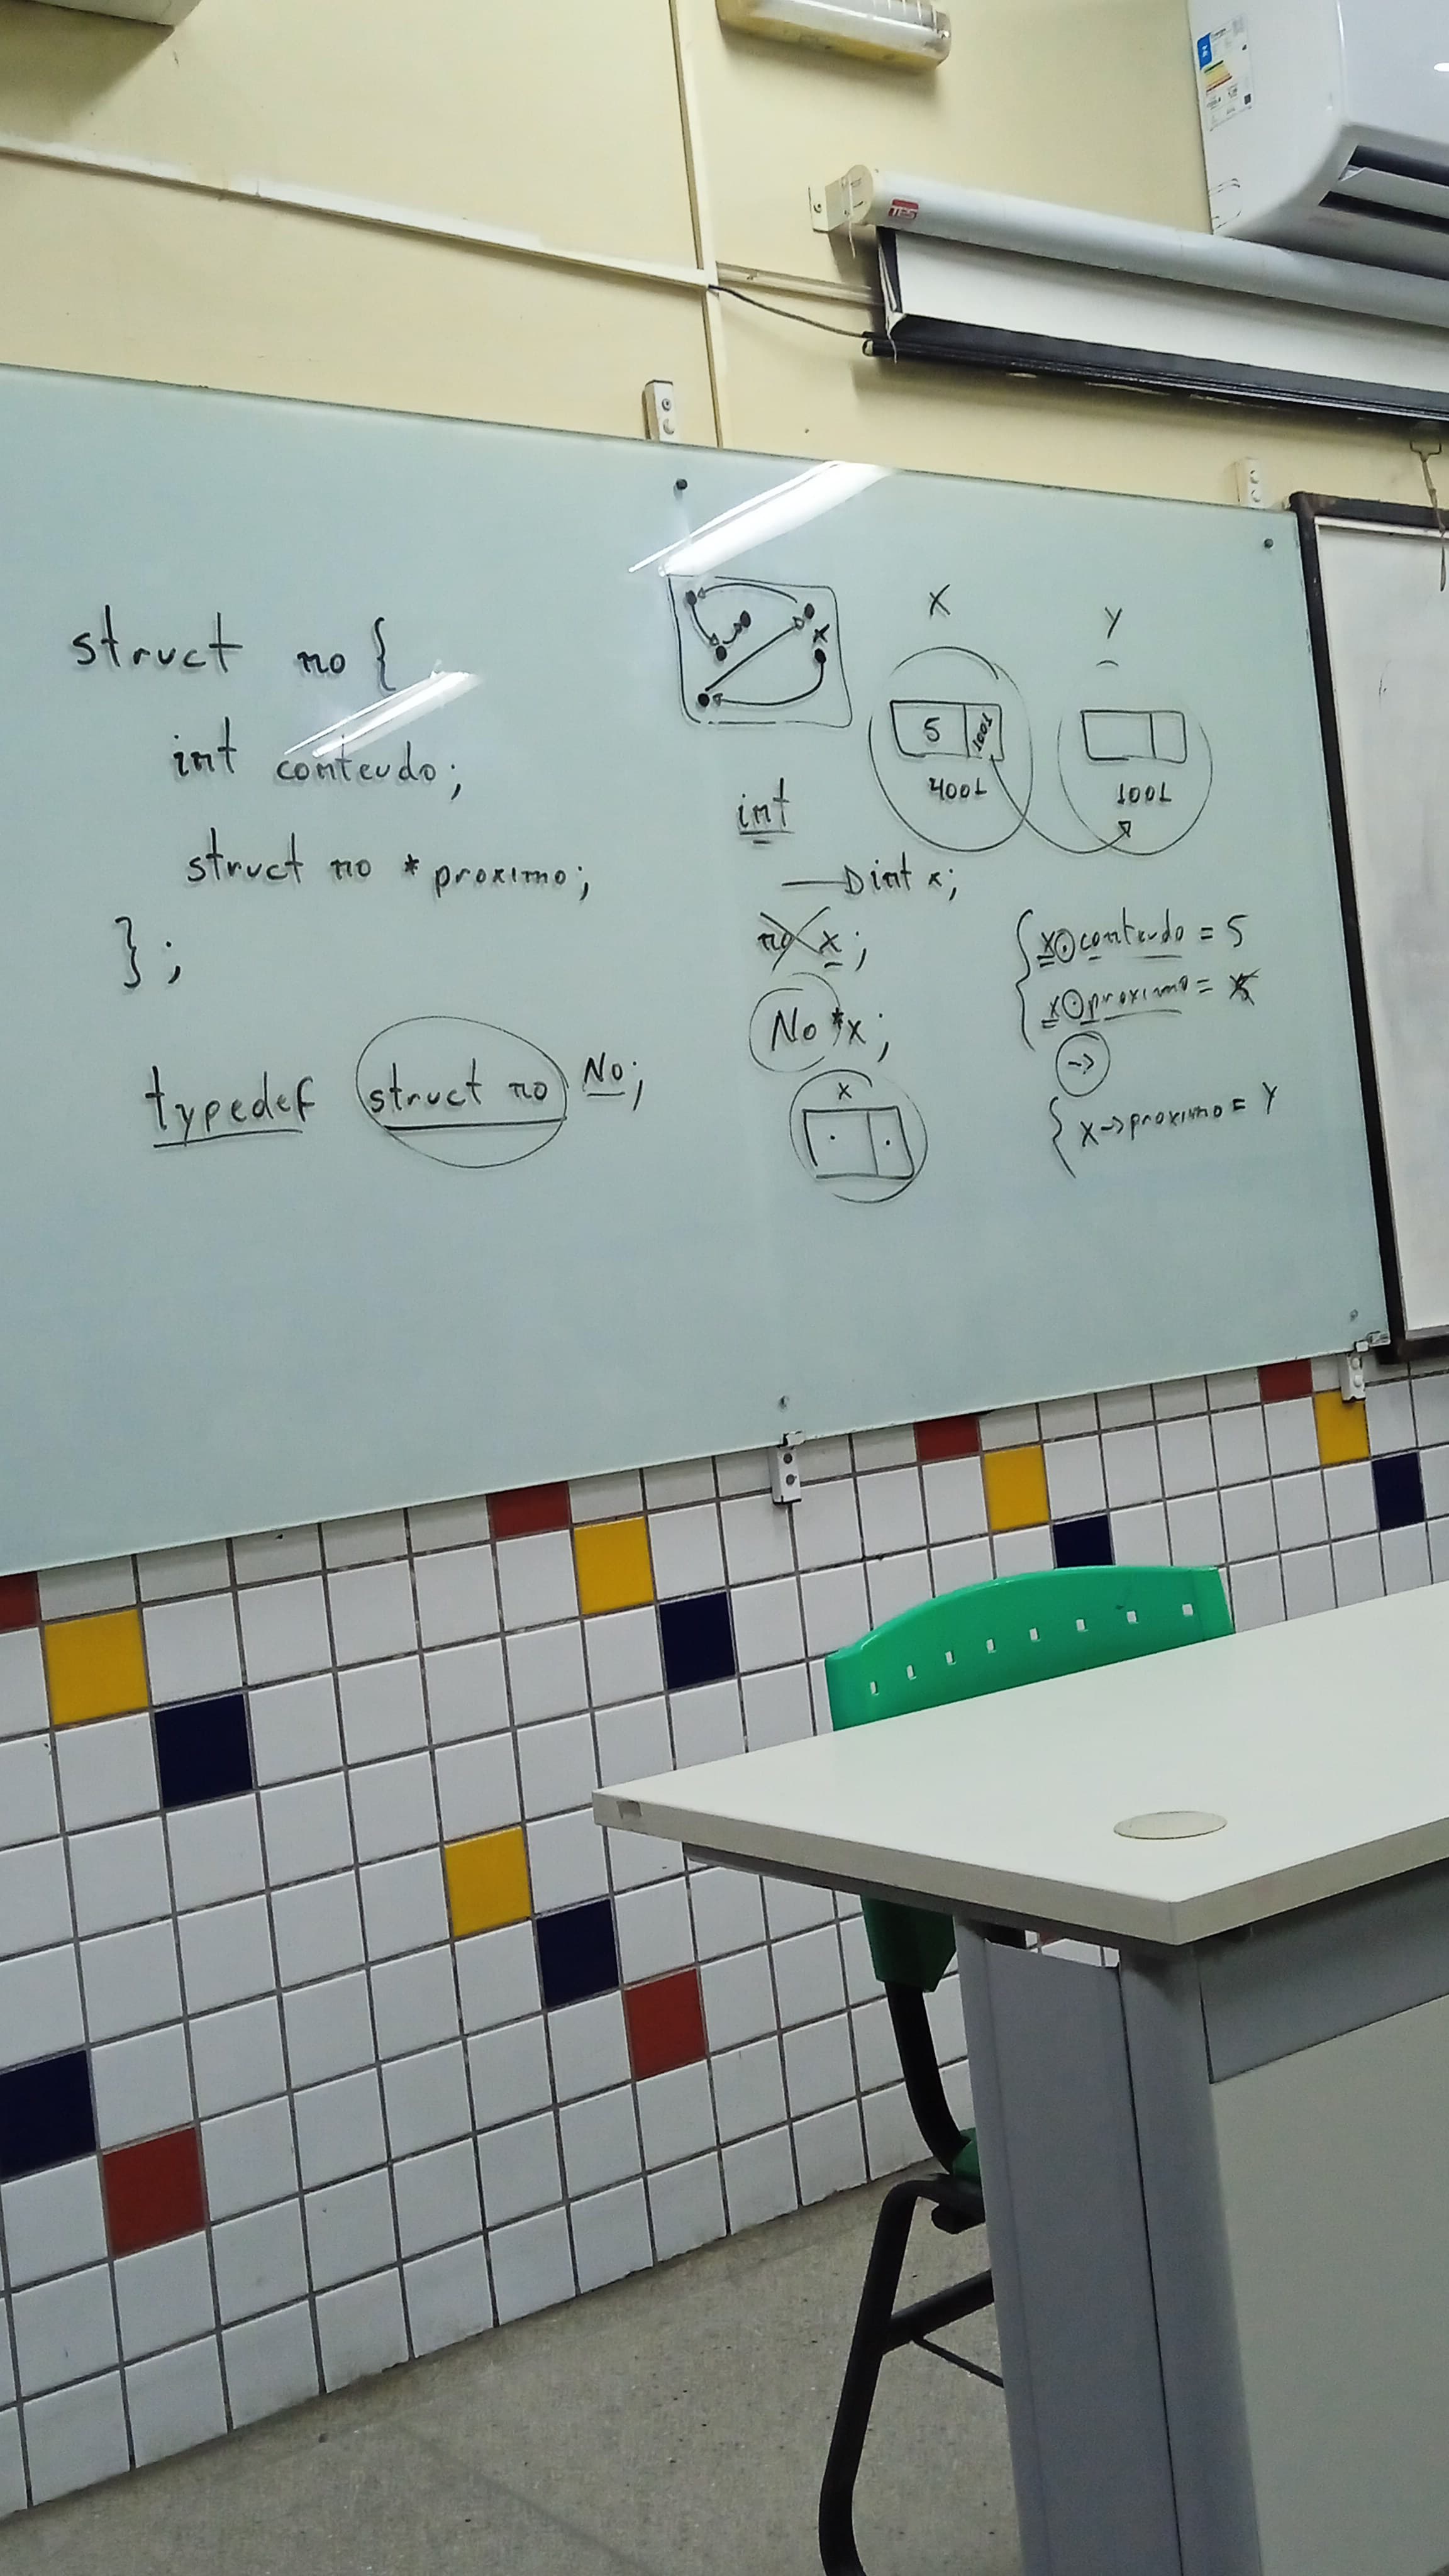 struct no {
int conteudo;
struct no * proximo;
};
typedef struct no No;
x
X
Y
5 1001
4001
1001
int
int x;
no x;
No *x;
x
x.conteudo = 5
x.proximo =
->
x->proximo = Y
TES